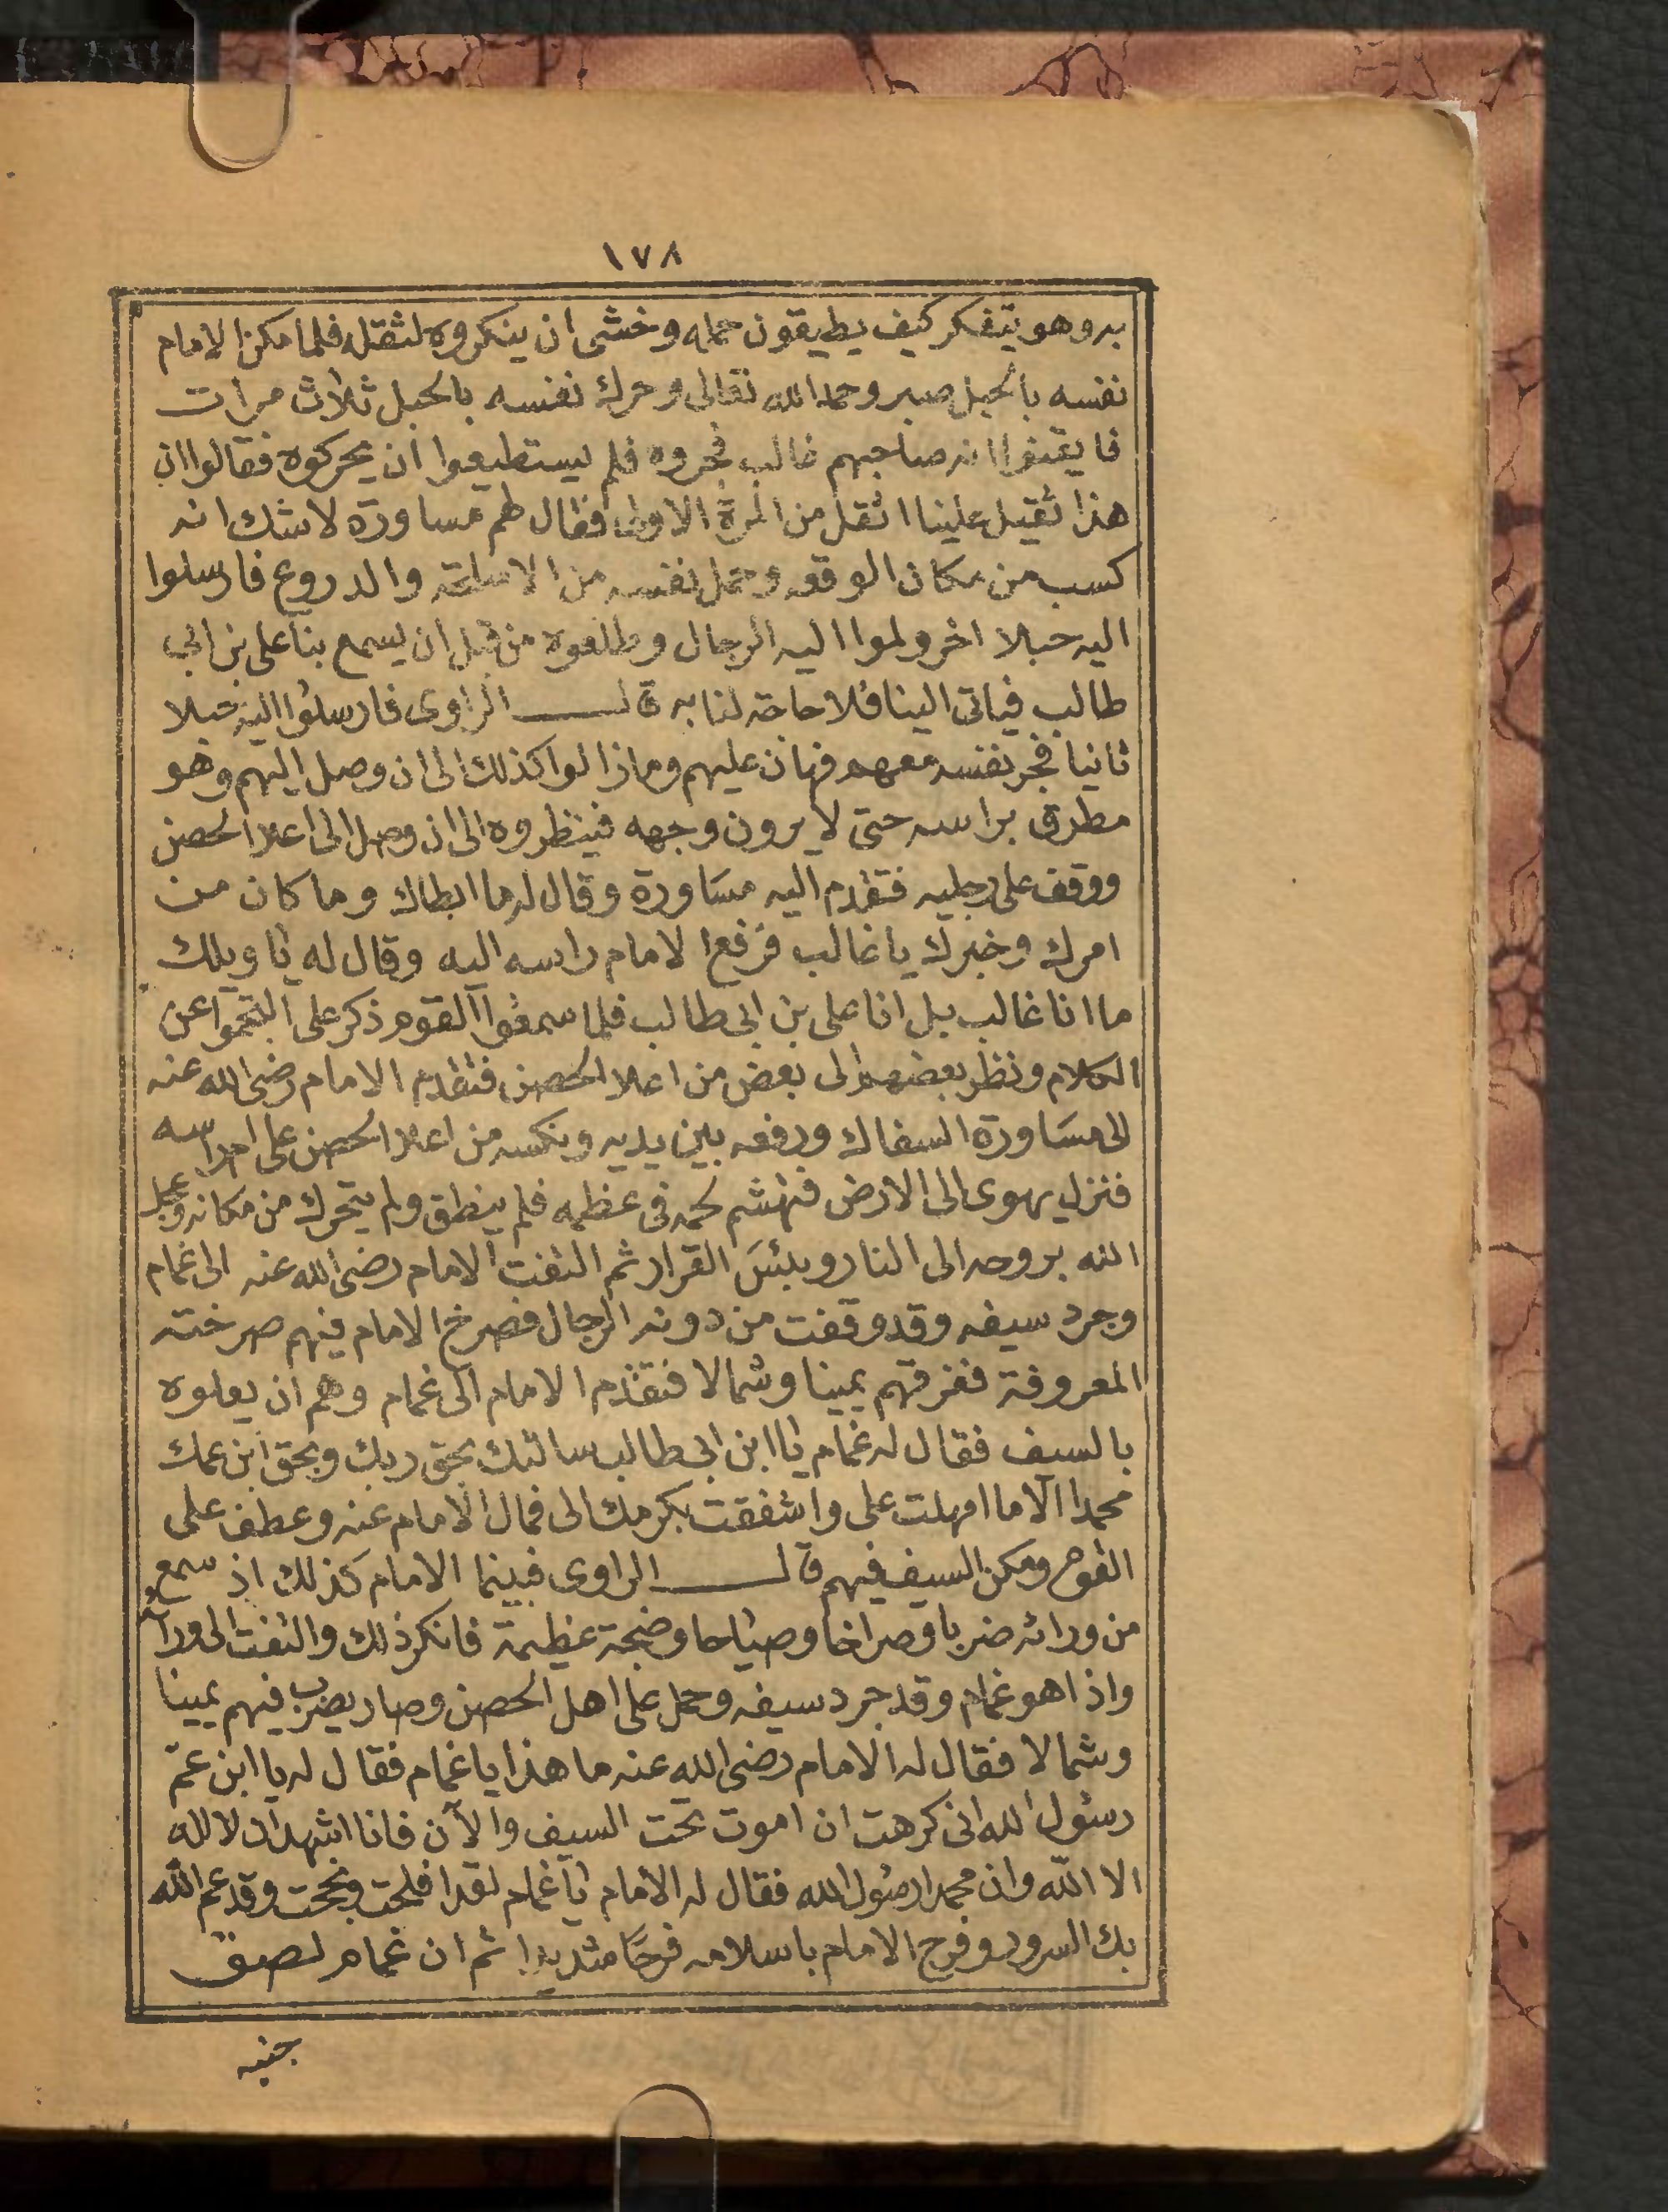 ١٧٨
به وهو يتفكر كيف يطيقون حمله وخشى ان ينكروه لثقله فلما مكن الامام
نفسه بالحبل صبر وحمد الله تعالى وحرك نفسه بالحبل ثلاث مرات
فايقنوا انه صاحبهم غالب فجروه فلم يستطيعوا ان يحركوه فقالوا ان
هذا ثقيل علينا اثقل من المرة الاولى فقال لهم مساورة لاشك انه
كسب من مكان الوقعه وحمل نفسه من الاسلحة والدروع فارسلوا
اليه حبلا اخر ولموا اليه الرجال وطلعوه من قبل ان يسمع بنا على بن ابى
طالب فياتى الينا فلا حاجة لنا به قال الراوى فارسلوا اليه حبلا
ثانيا فجر نفسه معهم فهان عليهم وما زالوا كذلك الى ان وصل اليهم وهو
مطرق براسه حتى لا يرون وجهه فينظروه الى ان وصل الى اعلا الحصن
ووقف على رجليه فتقدم اليه مساورة وقال له ما ابطاك وما كان من
امرك وخبرك يا غالب فرفع الامام راسه اليه وقال له يا ويلك
ما انا غالب بل انا على بن ابى طالب فلما سمعوا القوم ذكر على التجموا عن
الكلام ونظر بعضهم الى بعض من اعلا الحصن فتقدم الامام رضى الله عنه
الى مساورة السفاك ورفعه بين يديه وينكسه من اعلا الحصن على ام راسه
فنزل يهوى الى الارض فتهشم لحمه فى عظمه فلم ينطق ولم يتحرك من مكانه وعجل
الله بروحه الى النار وبئس القرار ثم التفت الامام رضى الله عنه الى غمام
وجرد سيفه وقد وقفت من دونه الرجال فصرخ الامام فيهم صرخته
المعروفة ففرقهم يمينا وشمالا فتقدم الامام الى غمام وهم ان يعلوه
بالسيف فقال له غمام يا ابن ابى طالب سالتك بحق ربك وبحق ابن عمك
محمدا الا ما امهلت على واشفقت بكرمك الى فمال الامام عنه وعطف على
القوم ومكن السيف فيهم قال الراوى فبينما الامام كذلك اذ سمع
من ورائه ضربا وصراخا وصياحا وضجة عظيمة فانكر ذلك والتفت الى ورائه
واذا هو غمام وقد جرد سيفه وحمل على اهل الحصن وصار يضرب فيهم يمينا
وشمالا فقال له الامام رضى الله عنه ما هذا يا غمام فقال له يا ابن عم
رسول الله انى كرهت ان اموت تحت السيف والآن فانا اشهد ان لا اله
الا الله وان محمدا رسول الله فقال له الامام يا غمام لقد افلحت ونجحت وقد عم الله
بك السرور وفرح الامام باسلامه فرحا شديدا ثم ان غمام لصق
جنبه